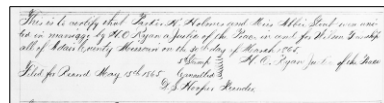 This is to certify that Parker H. Holmes and Miss Abbie Leal was uni-
ted in marriage by H. O. Ryan a Justice of the Peace in and for Wilson Township
all of Adair County Missouri on the 30th day of March 1865.
5ct Stamp H. O. Ryan Justice of the Peace
Filed for Record May 15th 1865 Cancelled
D. S. Hooper Recorder